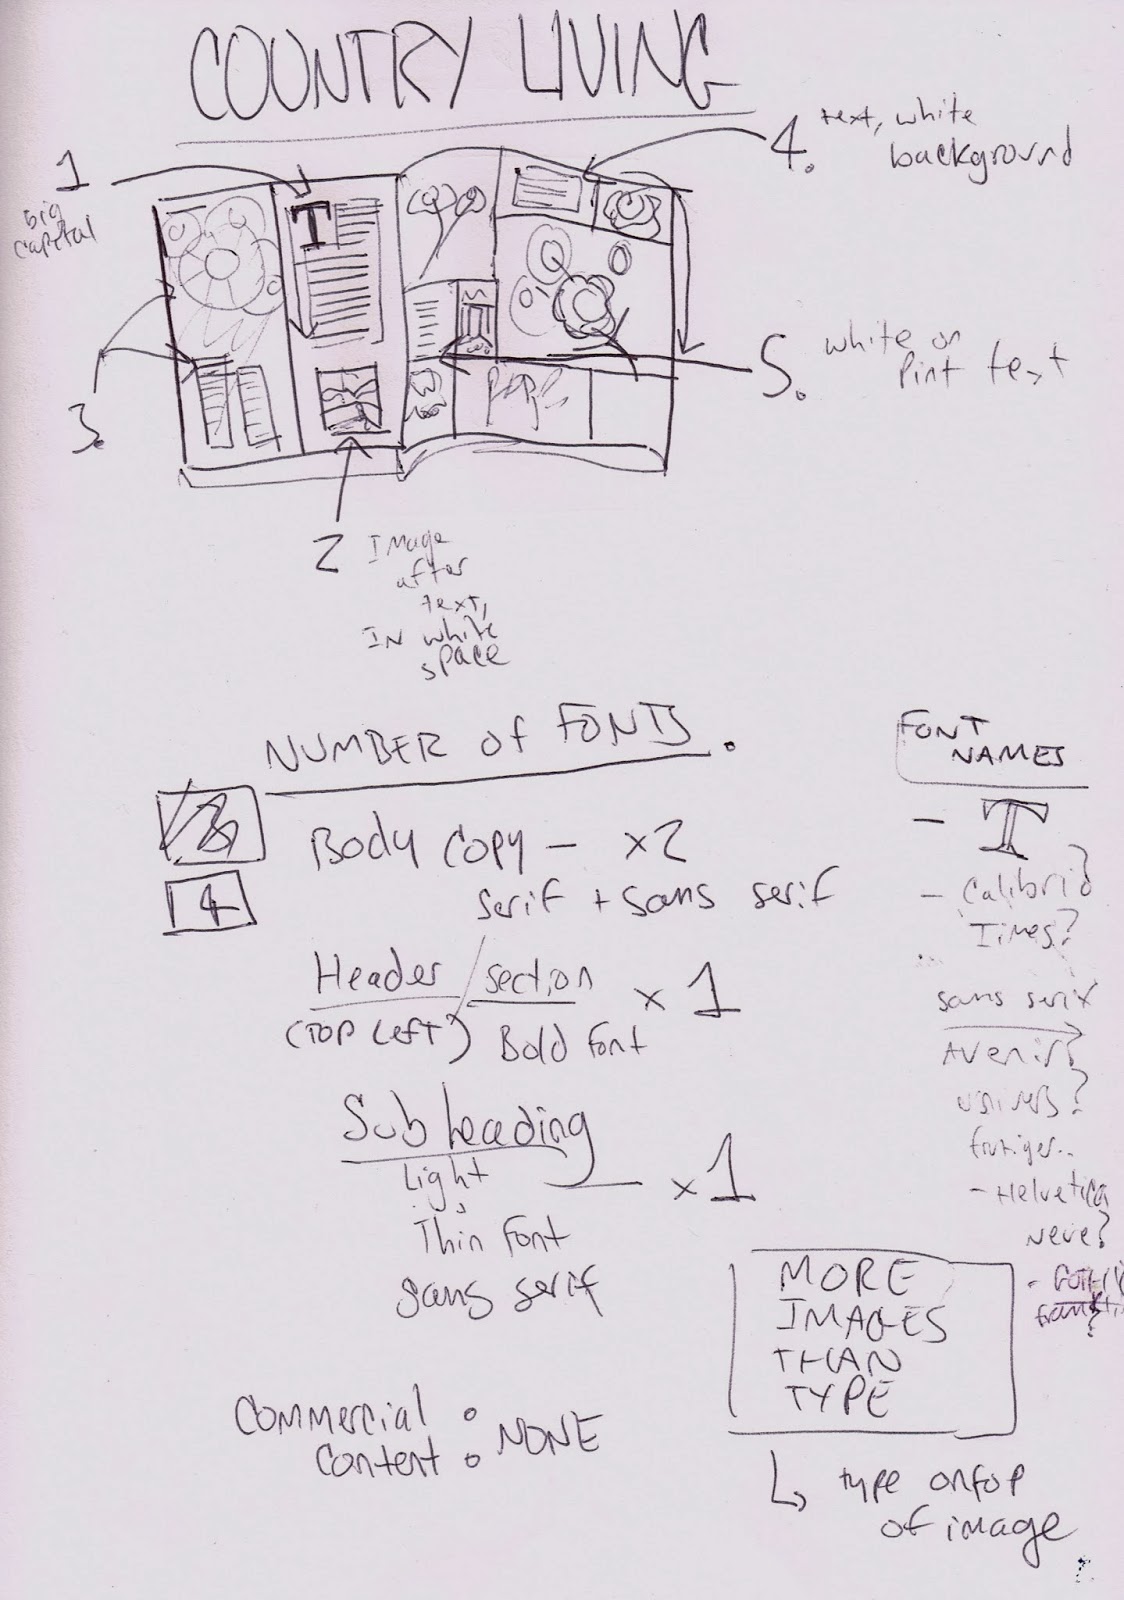 COUNTRY LIVING
1
big
capital
T
4. text, white
background
3.
5. white or
Pint text
2 Image
after
text,
IN white
space
NUMBER of FONTS.
4
Body copy – x2
serif + sans serif
Header / section x 1
(TOP LEFT) Bold font
Sub heading x 1
Light
Thin font
sans serif
FONT
NAMES
– T
– Calibri?
Times?
...
sans serif
Avenir?
univers?
frutiger..
– Helvetica
Neue?
MORE
IMAGES
THAN
TYPE
type ontop
of image
Commercial
content : NONE